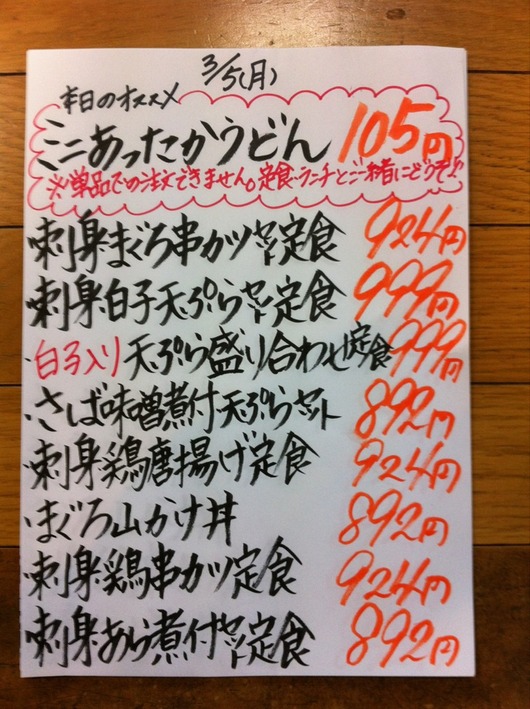 3/5(月)
本日のオススメ
ミニあったかうどん 105円
※単品での注文できません。定食・ランチとご一緒にどうぞ!!
・刺身まぐろ串カツセット定食 924円
・刺身白子天ぷらセット定食 999円
・白子入り天ぷら盛り合わせ定食 999円
・さば味噌煮付天ぷらセット 892円
・刺身鶏唐揚げ定食 924円
・まぐろ山かけ丼 892円
・刺身鶏串カツ定食 924円
・刺身あら煮付セット定食 892円